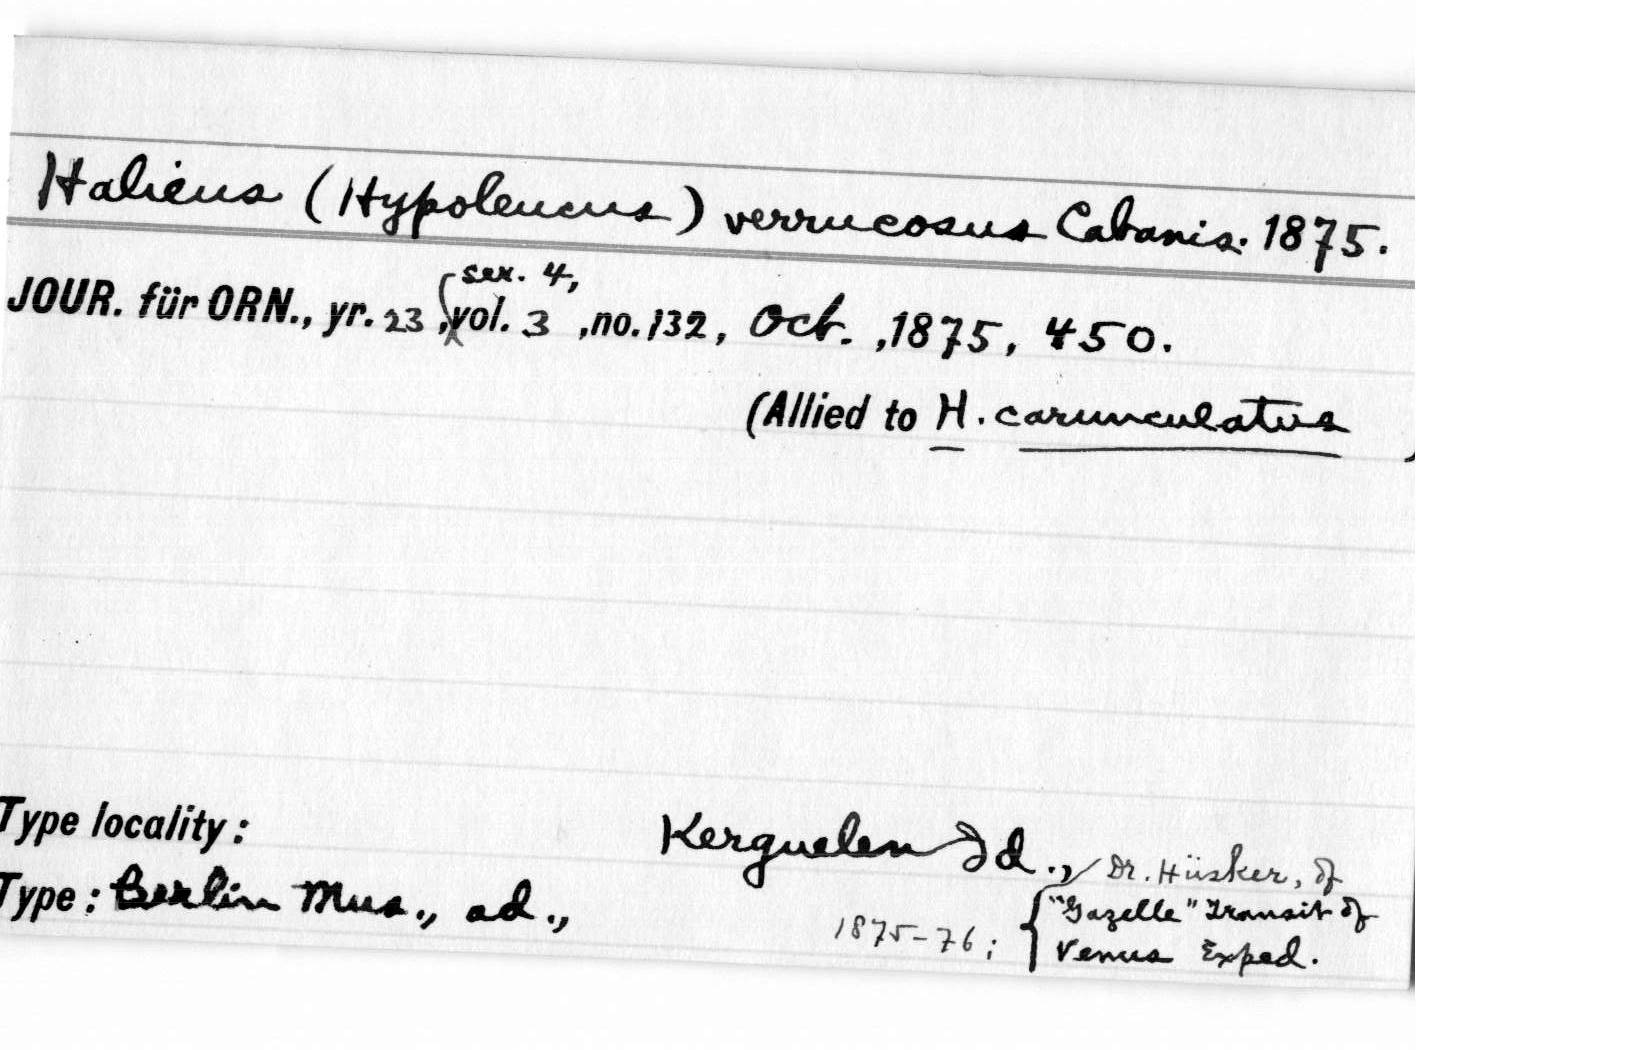 Halieus (Hypoleucus) verrucosus Cabanis. 1875.
ser. 4,
JOUR. für ORN., yr. 23, vol. 3, no. 132, Oct., 1875, 450.
(Allied to H. carunculatus)
Type locality: Kerguelen Id., Dr. Hüsker, of
Type: Berlin Mus., ad., 1875-76; "Gazelle" Transit of
Venus Exped.